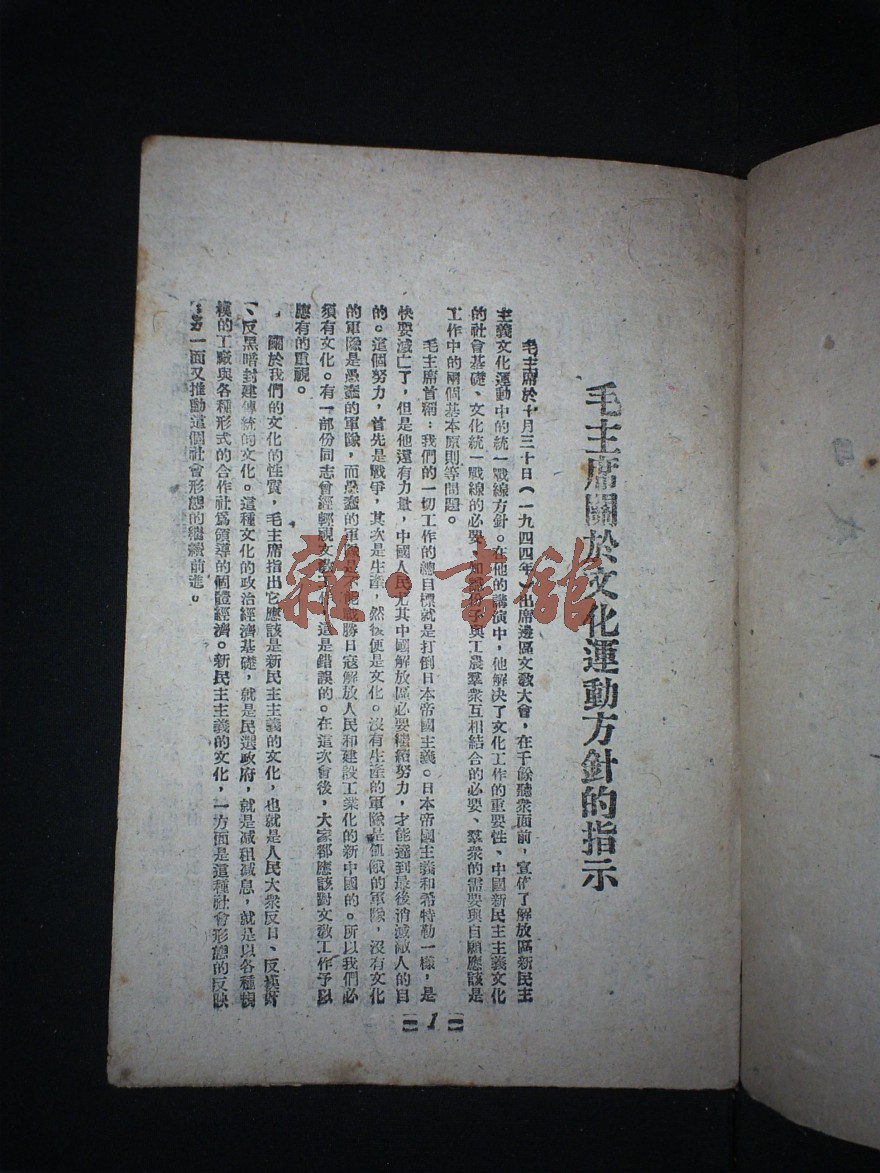 毛主席關於文化運動方針的指示
毛主席於十月三十日（一九四四年）出席邊區文教大會，在千餘聽衆面前，宣佈了解放區新民主
主義文化運動中的統一戰線方針。在他的講演中，他解决了文化工作的重要性、中國新民主主義文化
的社會基礎、文化統一戰線的必要、知識份子與工農羣衆互相結合的必要、羣衆的需要與自願應該是
工作中的兩個基本原則等問題。
毛主席首稱：我們的一切工作的總目標就是打倒日本帝國主義。日本帝國主義和希特勒一樣，是
快要滅亡了，但是他還有力量，中國人民尤其中國解放區必要繼續努力，才能達到最後消滅敵人的目
的。這個努力，首先是戰爭，其次是生產，然後便是文化。沒有生產的軍隊是飢餓的軍隊，沒有文化
的軍隊是愚蠢的軍隊，而愚蠢的軍隊是不能戰勝日寇解放人民和建設工業化的新中國的。所以我們必
須有文化。有一部份同志曾經輕視文教工作，這是錯誤的。在這次會後，大家都應該對文教工作予以
應有的重視。
關於我們的文化的性質，毛主席指出它應該是新民主主義的文化，也就是人民大衆反日、反漢奸
、反黑暗封建傳統的文化。這種文化的政治經濟基礎，就是民選政府，就是減租減息，就是以各種規
模的工廠與各種形式的合作社爲領導的個體經濟。新民主主義的文化，一方面是這種社會形態的反映
，另一面又推動這個社會形態的繼續前進。
1
雜·書舘